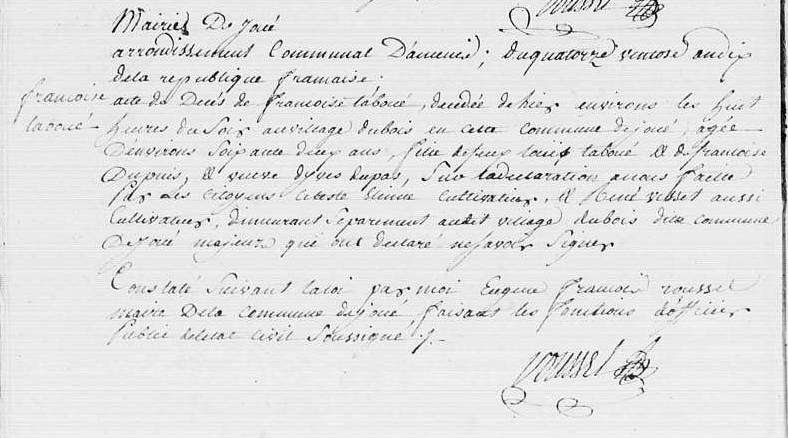 roussel
Mairie De joué
arrondissement Communal D'ancenis ; du quatorze ventose an dix
de la republique francaise.
francoise
taboué
acte de Decés de francoise taboué, decedée de hier environs les huit
heures du Soir au village dubois en cette commune de joué, agée
D'environs Soixante deux ans, fille de feux louis taboué & de francoise
Dupuis, & veuve d'yves dupas, Sur la declaration a nous faitte
par les citoyens Etienne Cultivateur, & René aussi
Cultivateur, demeurant Separement audit village dubois dite commune
De joué majeurs qui ont declaré ne savoir Signer
Constaté Suivant la loi par moi Eugene francois roussel
maire De la commune de joué faisant les fonctions d'officier
Public de letat Civil Soussigné ./.
roussel